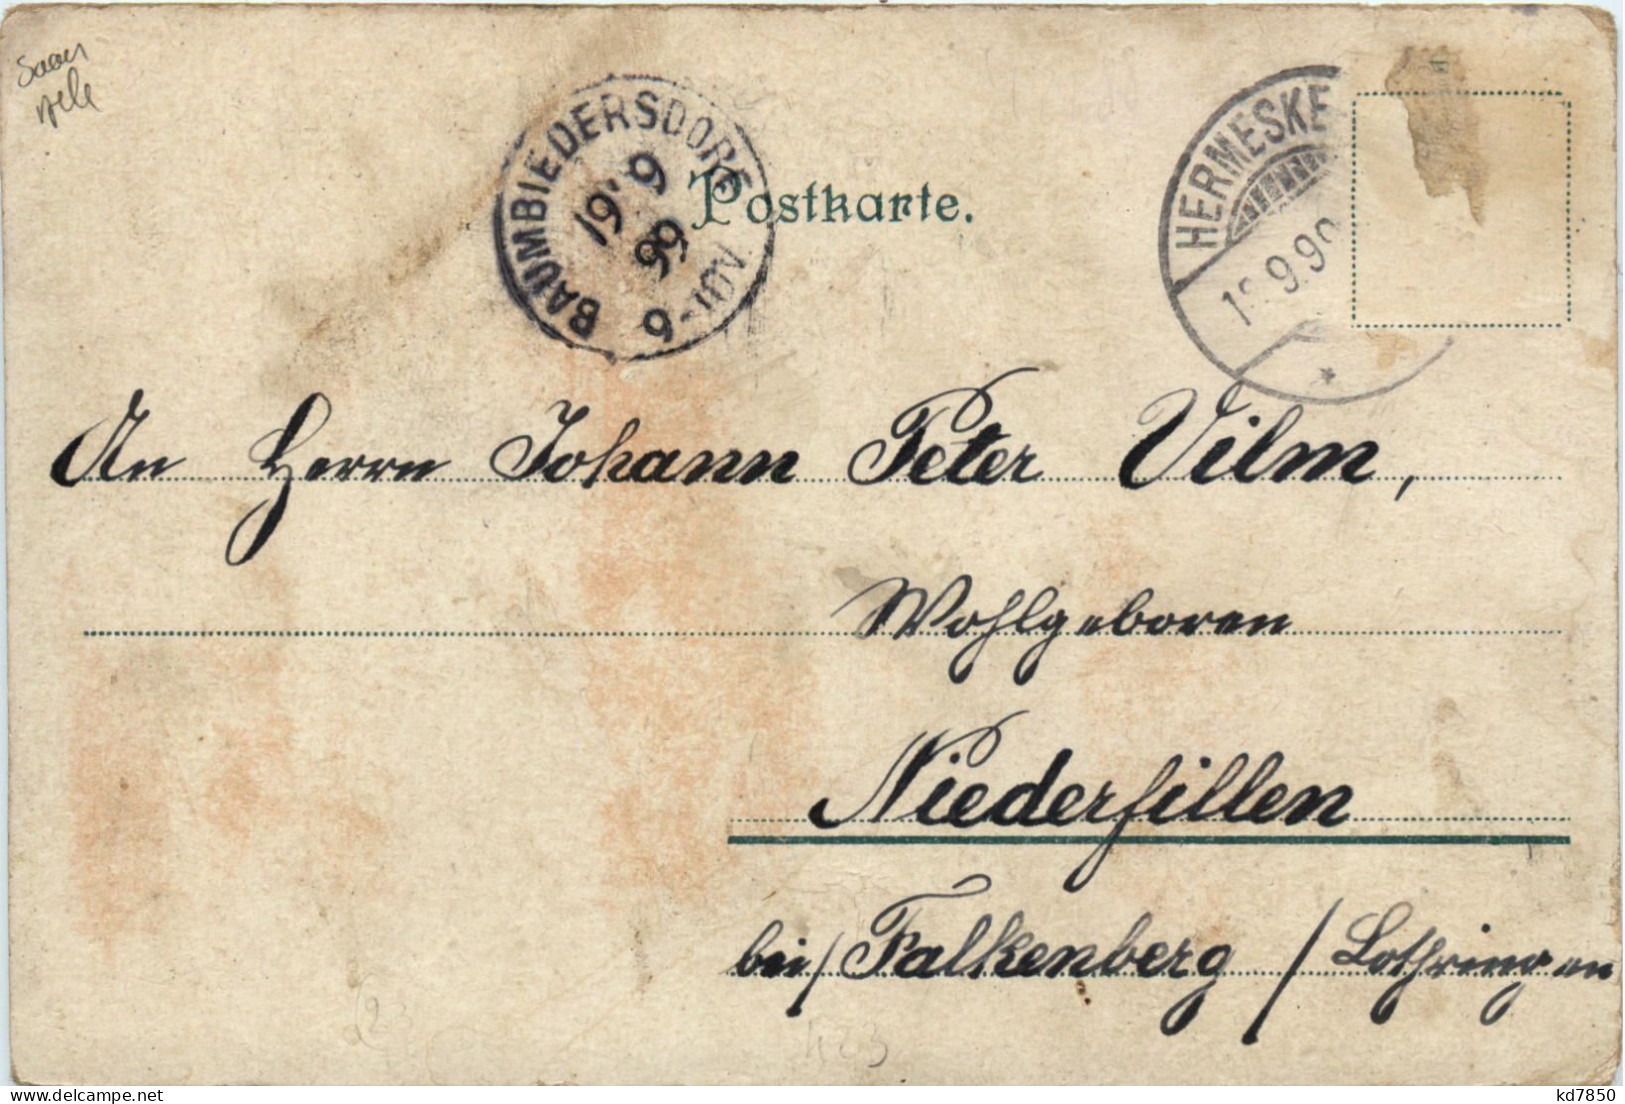 Saar
BAUMBIEDERSDORF
19 9
99
9-10V.
Postkarte.
HERMESKE
9.9
An Herrn Johann Peter Vilm,
Wohlgeboren
Niederfillen
bei / Falkenberg / Lothringen
123
kd7850